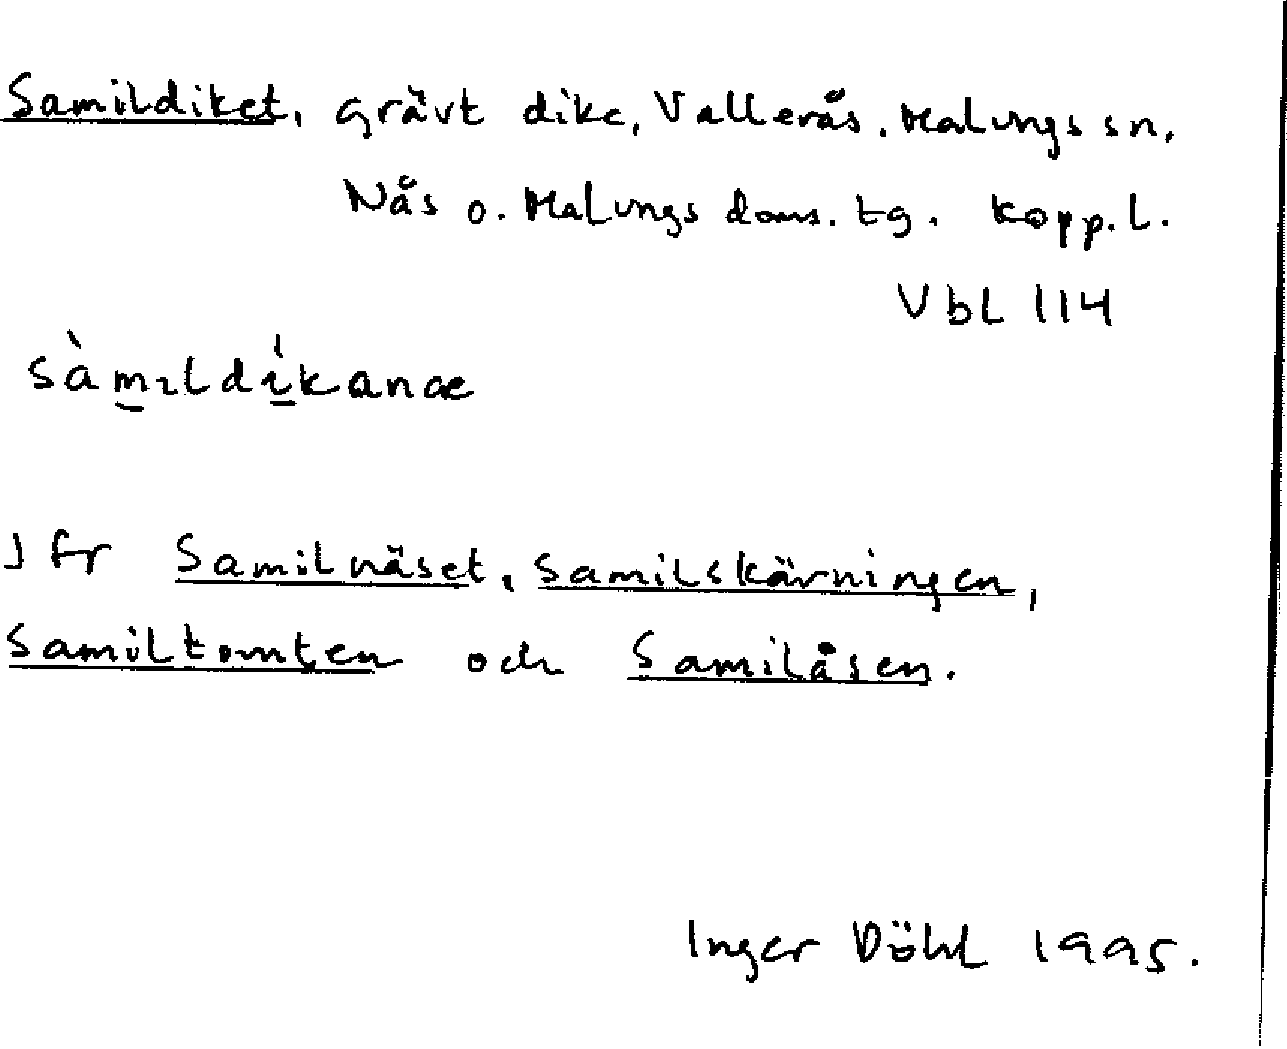 Samildiket, grävt dike, Vallerås. Malungs sn.
Nås o. Malungs doms. tg. Kopp. l.
Vbl 114
sàmıldíkanæ
Jfr Samilnäset, Samilskärningen,
Samiltomten och Samilåsen.
Inger Döhl 1995.